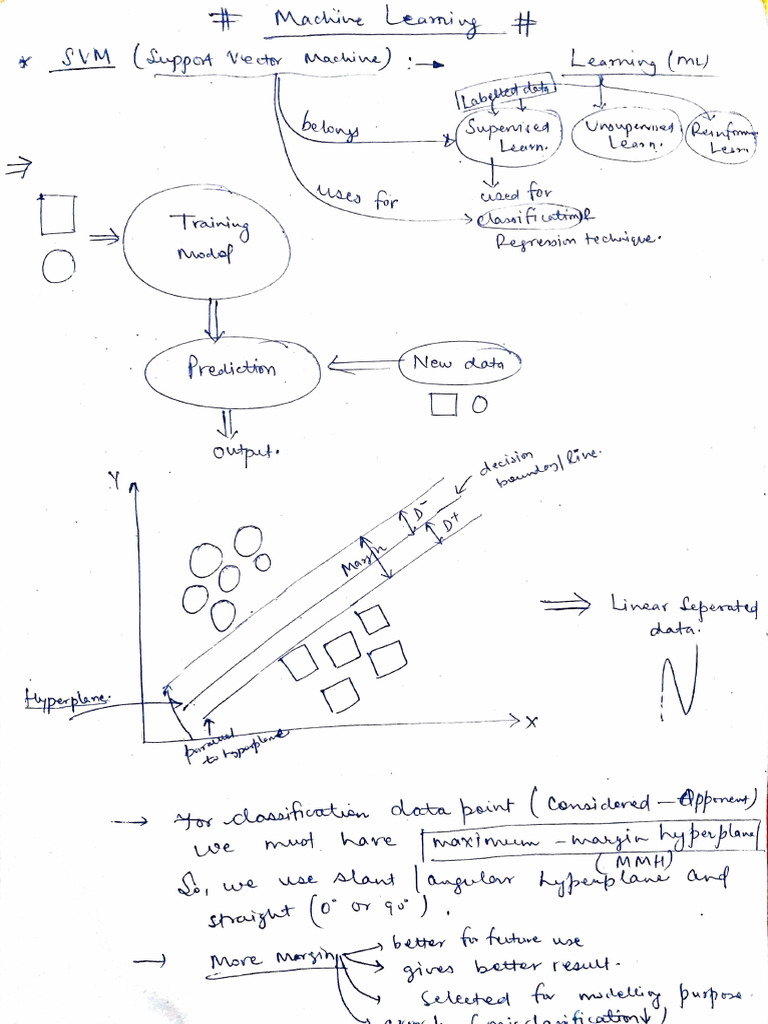 # Machine Learning #
* SVM (Support Vector Machine) :→
Learning (ML)
Labelled data
belongs
Supervised
Learn.
Unsupervised
Learn.
Learn
⇒
uses for
used for
classification &
Regression technique.
Training
Model
Prediction
New data
output.
Y
decision
boundary/line.
D-
D+
Margin
⇒ Linear Seperated
data.
Hyperplane.
X
to hyperplane
→ For classification data point (Considered - Opponent)
we must have maximum - margin hyperplane
(MMH)
So, we use slant / angular hyperplane and
straight (0° or 90°).
→ More Margin
better for future use
gives better result.
Selected for modelling purpose.
(misclassification↓)